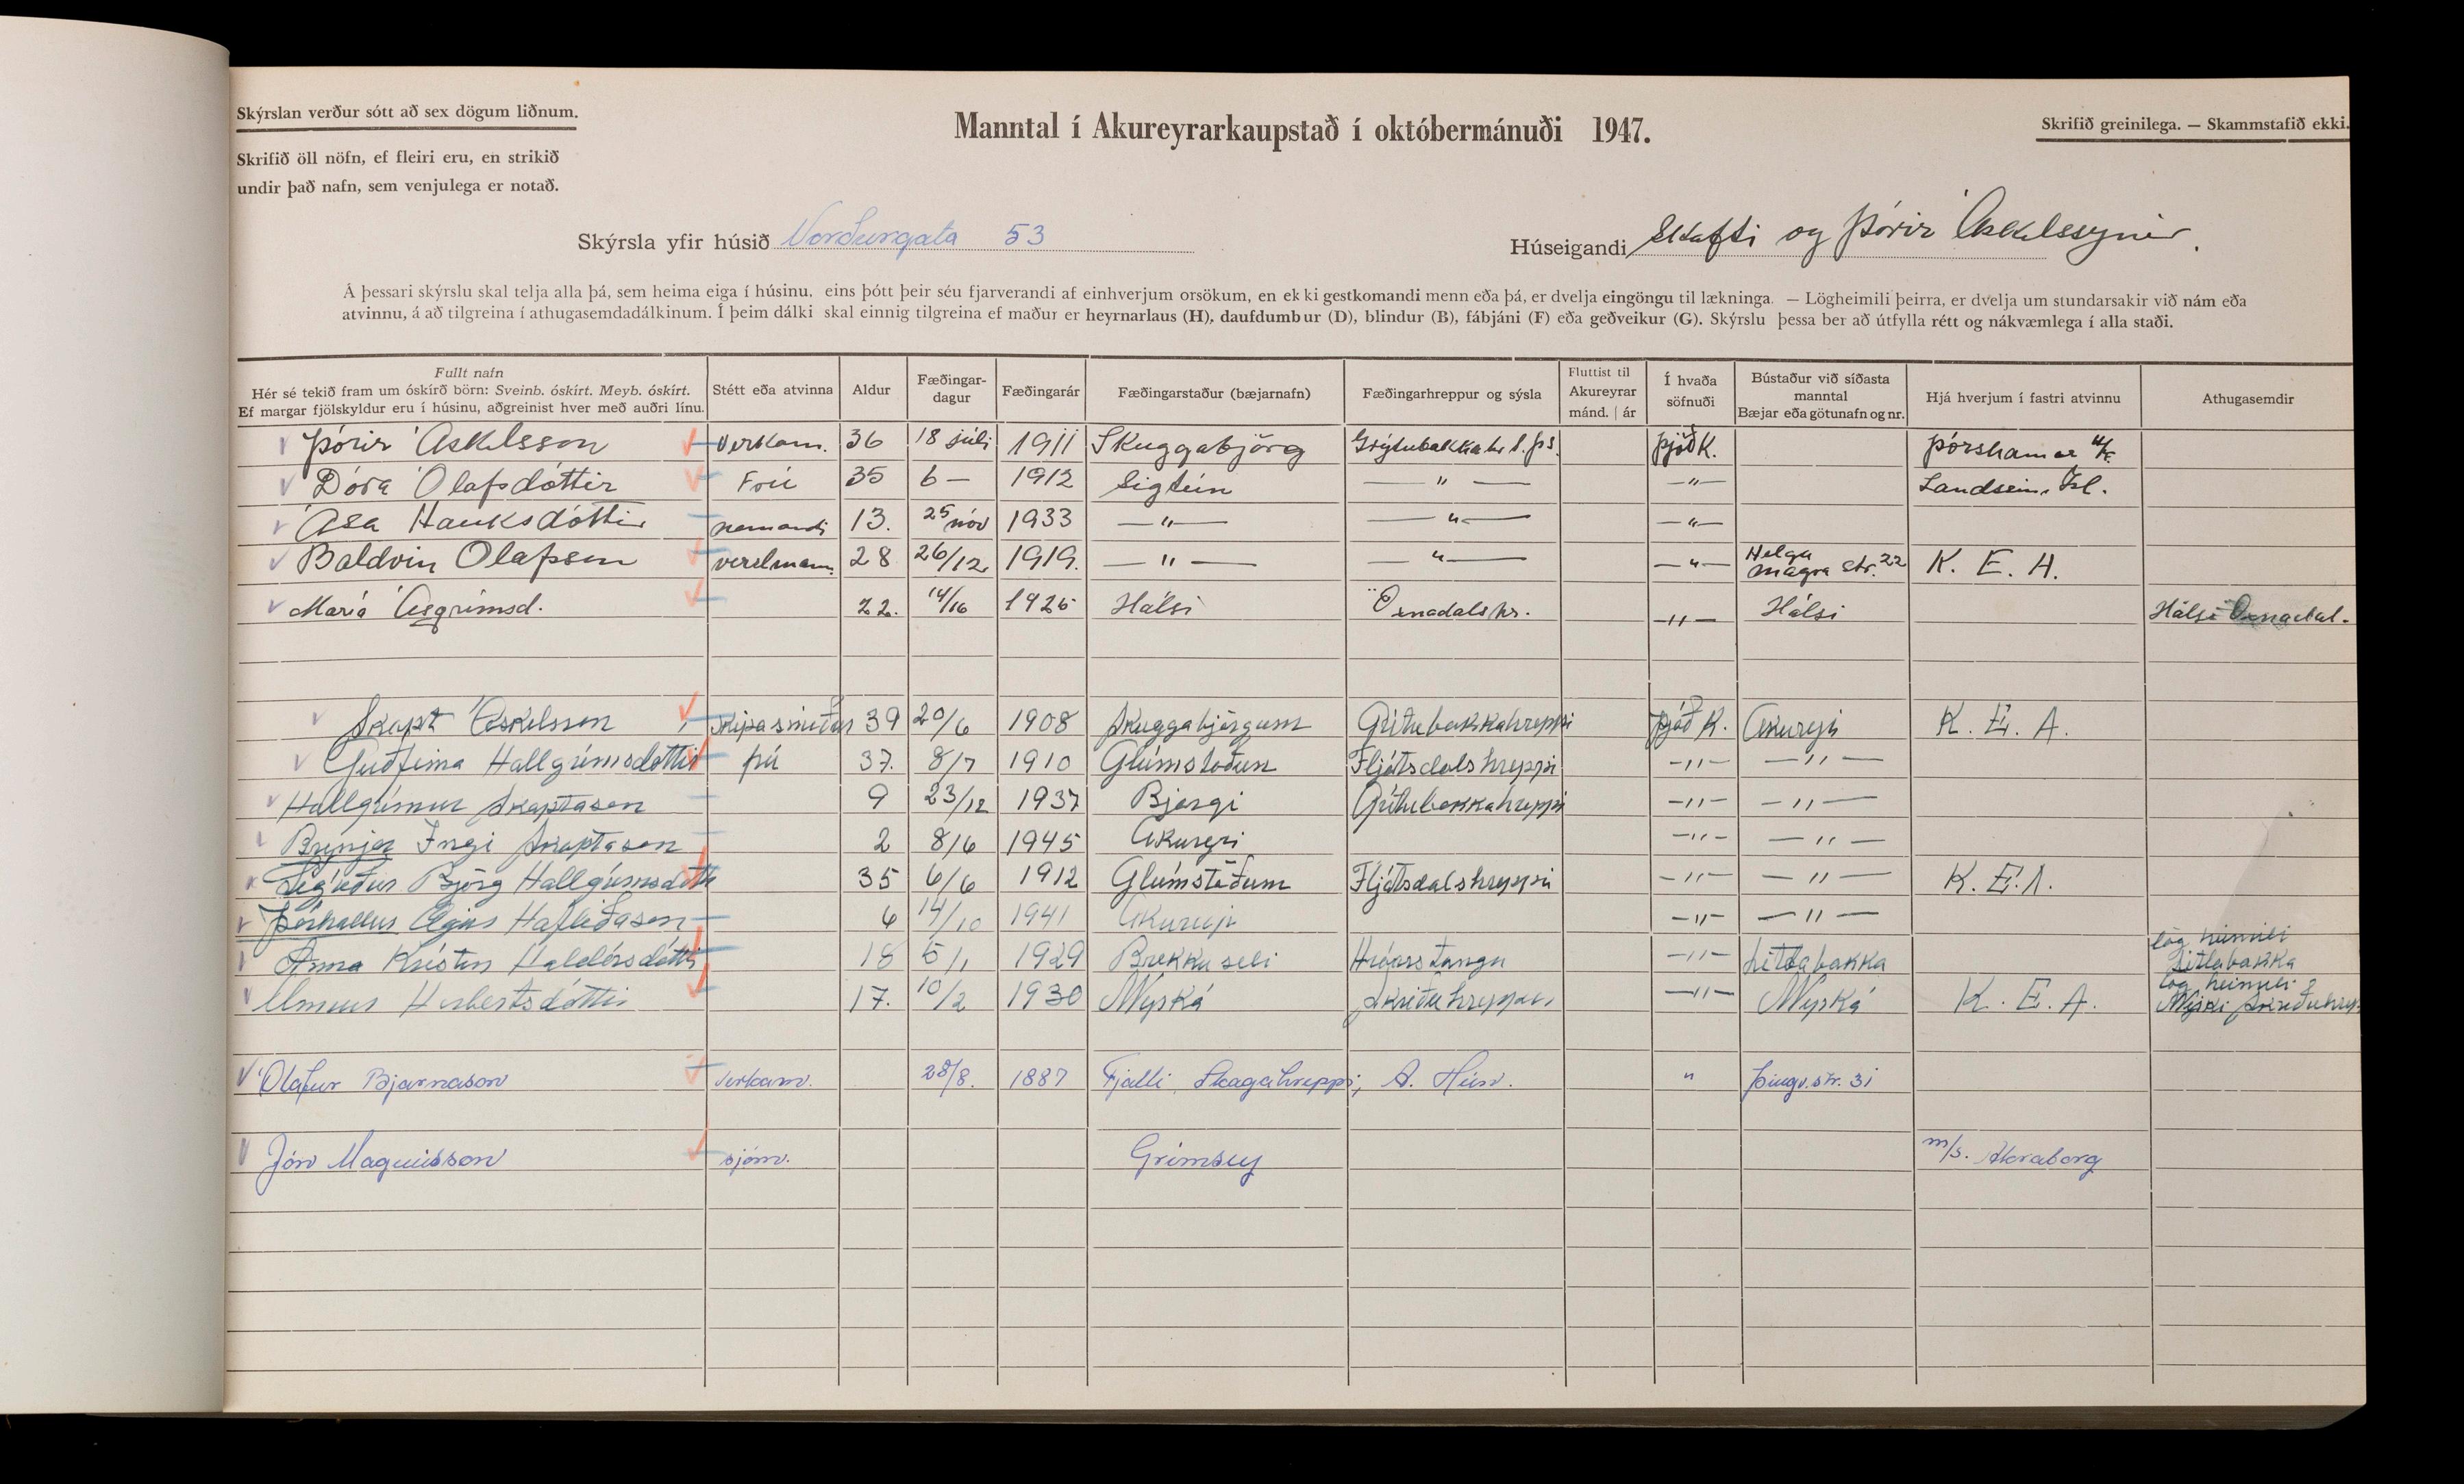 Skýrslan verður sótt að sex dögum liðnum.
Skrifið öll nöfn, ef fleiri eru, en strikið
undir það nafn, sem venjulega er notað.
Manntal í Akureyrarkaupstað í októbermánuði 1947.
Skrifið greinilega. — Skammstafið ekki.
Skýrsla yfir húsið Norðurgata 53
Húseigandi Skafti og Þórir Áskelssynir.
Á þessari skýrslu skal telja alla þá, sem heima eiga í húsinu, eins þótt þeir séu fjarverandi af einhverjum orsökum, en ekki gestkomandi menn eða þá, er dvelja eingöngu til lækninga. — Lögheimili þeirra, er dvelja um stundarsakir við nám eða
atvinnu, á að tilgreina í athugasemdadálkinum. Í þeim dálki skal einnig tilgreina ef maður er heyrnarlaus (H), daufdumbur (D), blindur (B), fábjáni (F) eða geðveikur (G). Skýrslu þessa ber að útfylla rétt og nákvæmlega í alla staði.
Fullt nafn
Hér sé tekið fram um óskírð börn: Sveinb. óskírt. Meyb. óskírt.
Ef margar fjölskyldur eru í húsinu, aðgreinist hver með auðri línu.
Stétt eða atvinna
Aldur
Fæðingar-
dagur
Fæðingarár
Fæðingarstaður (bæjarnafn)
Fæðingarhreppur og sýsla
Fluttist til
Akureyrar
mánd. | ár
Í hvaða
söfnuði
Bústaður við síðasta
manntal
Bæjar eða götunafn og nr.
Hjá hverjum í fastri atvinnu
Athugasemdir
Þórir Áskelsson Verkam. 36 18 júli 1911 Skuggabjörg Grýtubakkahr. S.Þs. Þjóðk. Þórshamar h/f
Dóra Ólafsdóttir Frú 35 6 — 1912 Sigtún — " — — " — Landsím. Ísl.
Ása Hauksdóttir nemandi 13. 25 nóv 1933 — " — — " — — " —
Baldvin Ólafsson verslmann. 28 26/12 1919. — " — — " — — " — Helga magra str. 22 K. E. A.
María Ásgrímsd. 22. 14/10 1925 Hálsi Öxnadalshr. — " — Hálsi Hálsi Öxnadal.
Skapti Áskelsson Skipasmiður 39 20/6 1908 Skuggabjörgum Grítubakkahreppi Þjóð K. Akureyri K. E. A.
Guðfinna Hallgrímsdóttir frú 37. 8/7 1910 Glúmstöðum Fljótsdalshreppi — " — — " —
Hallgrímur Skaptason 9 23/12 1937 Bjargi Grítubakkahreppi — " — — " —
Brynjar Ingi Skaptason 2 8/6 1945 Akureyri — " — — " —
Sigríður Björg Hallgrímsdóttir 35 6/6 1912 Glúmstöðum Fljótsdalshreppi — " — — " — K. E. A.
Þórhallur Ægir Hafliðason 6 14/10 1941 Akureyri — " — — " —
lög heimili
Anna Kristín Halldórsdóttir 18 5/1 1929 Brekku seli Hróarstungu — " — Litlabakka Litlabakka
lög heimili
Unnur Herbertsdóttir 17. 10/2 1930 Mýrká Skriðuhreppi — " — Mýrká K. E. A. Skriðuhrep.
Ólafur Bjarnason Verkam. 28/8. 1887 Fjalli Skagahreppi, A. Hún. " Þingv.str. 31
Jón Magnússon sjóm. Grímsey m/s. Akraborg